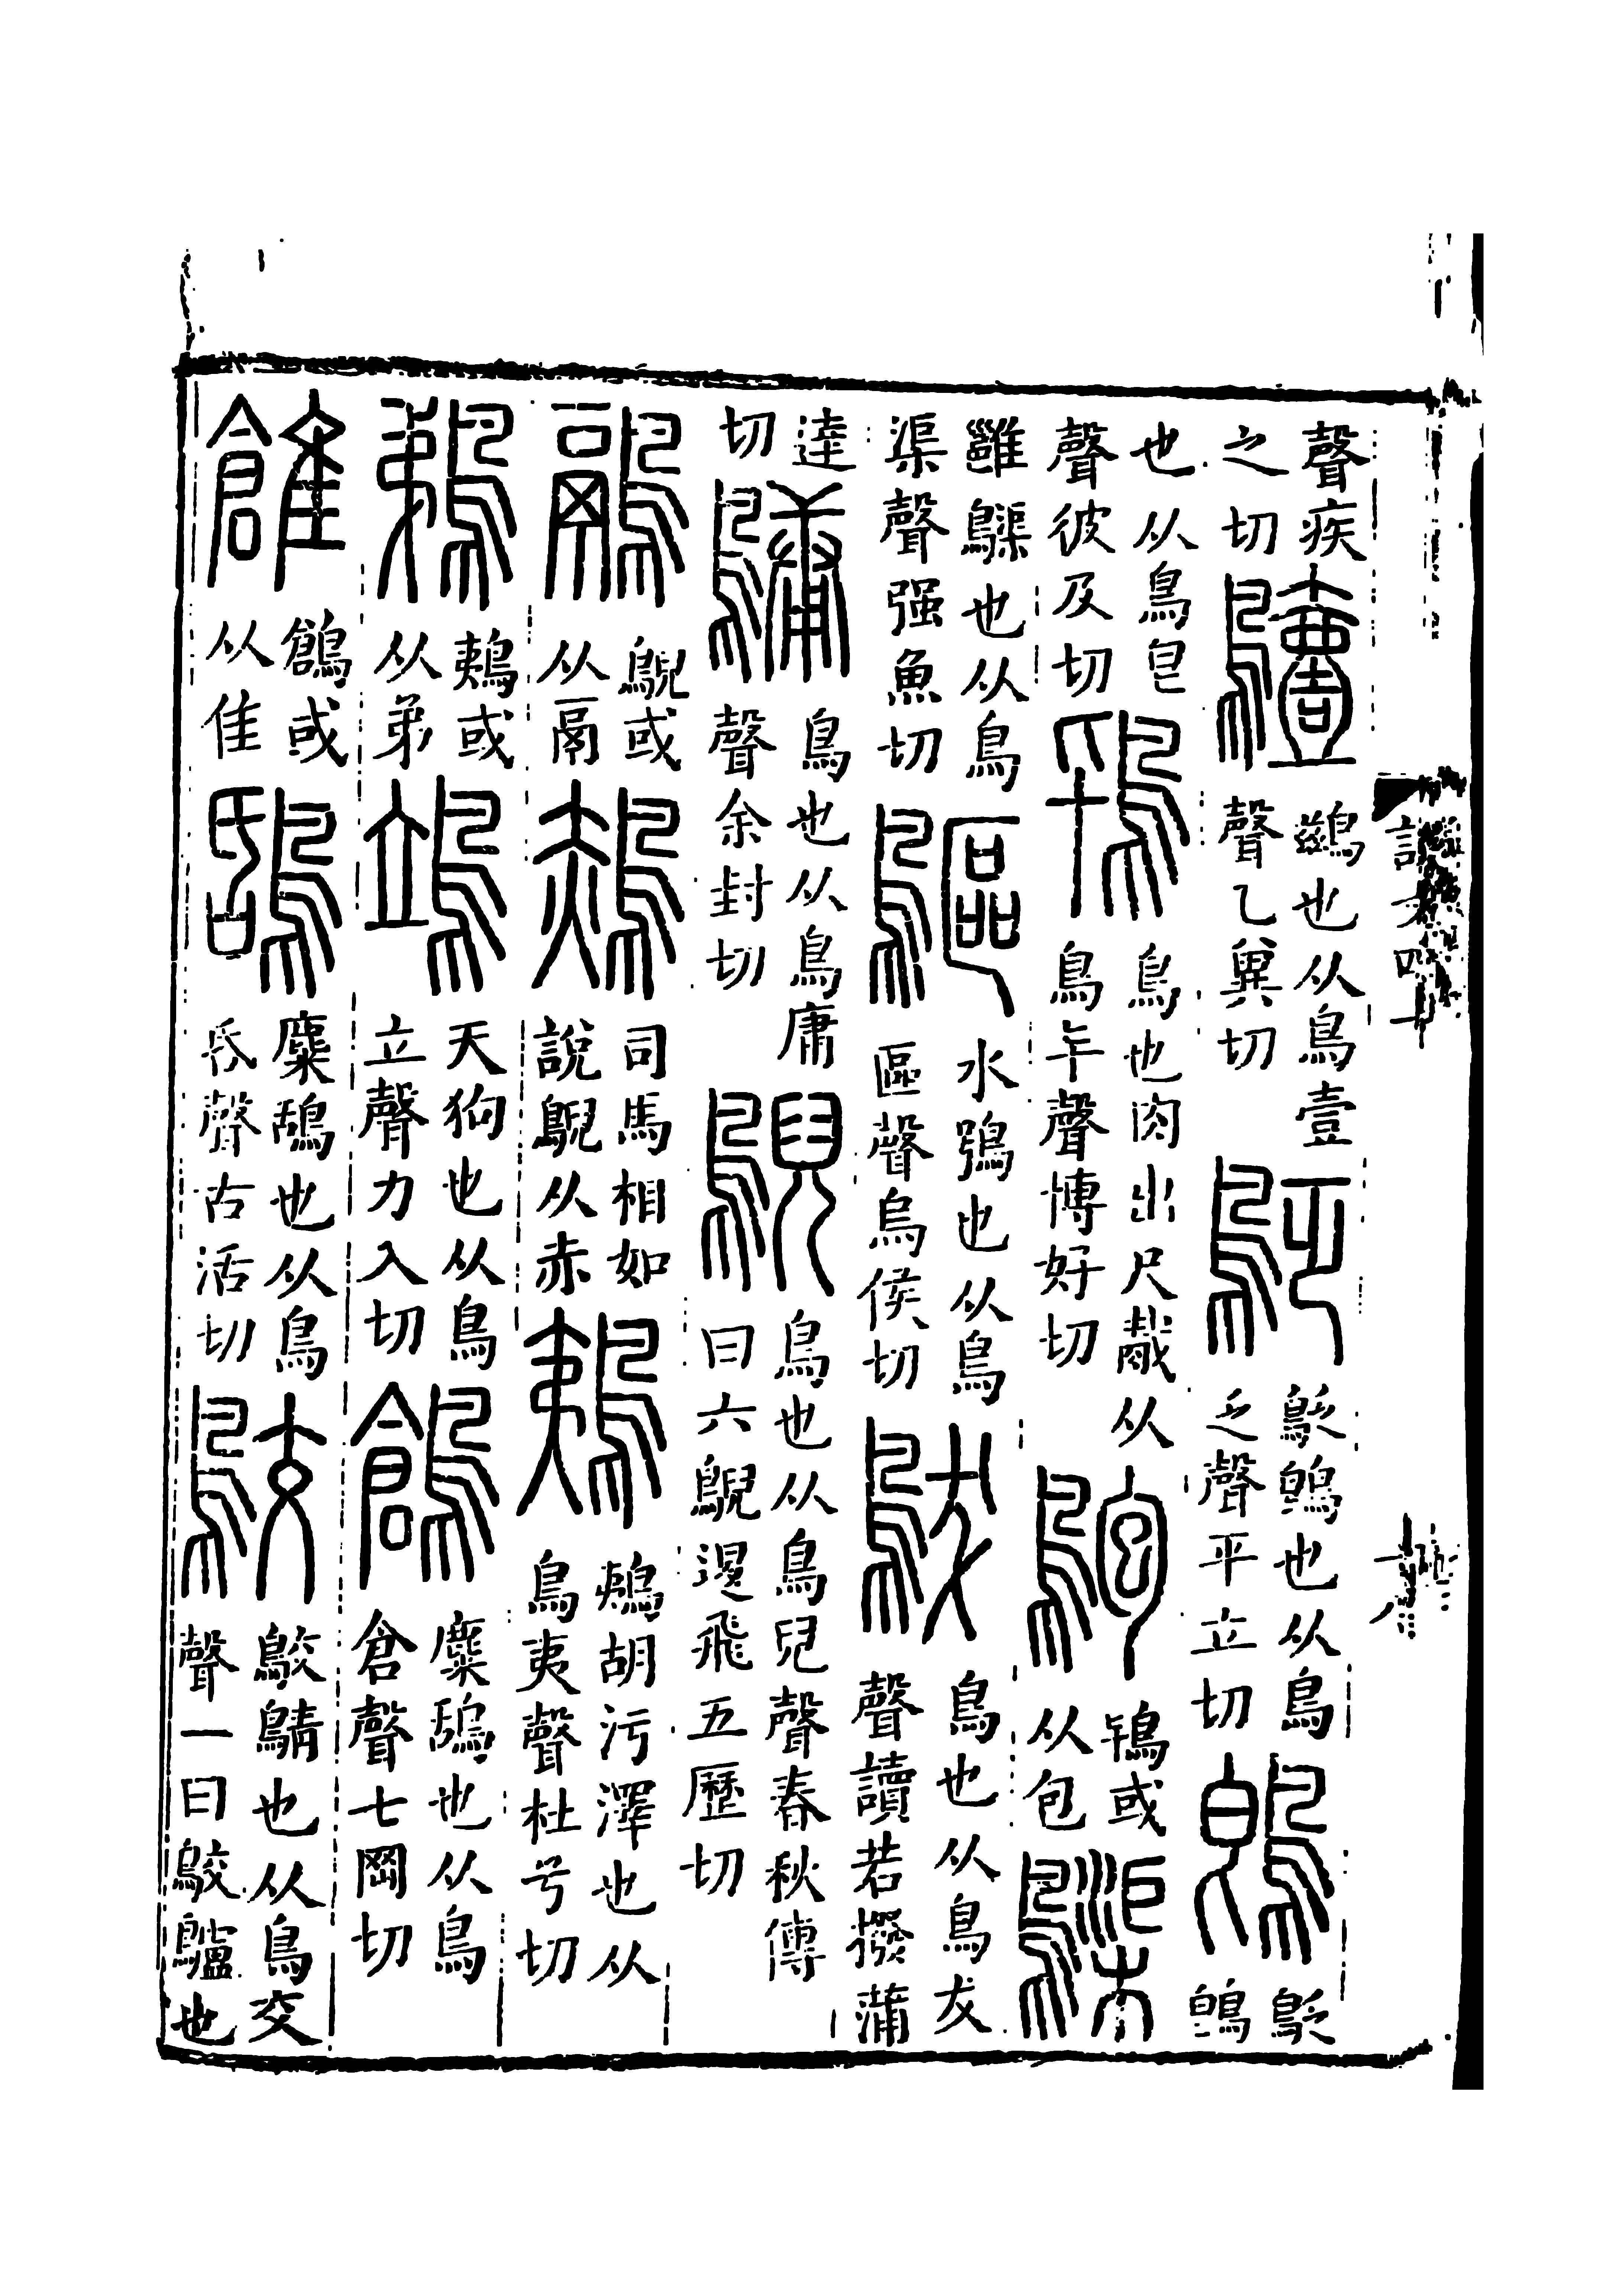 說文四上
聲疾之切鷧鷀也从鳥壹聲乙冀切鴔鴔鵖也从鳥乏聲平立切鵖鴔鵖
也从鳥皀聲彼及切鴇鳥也肉出尺胾从鳥𠦒聲博好切鴇或从包䴌
雝䴌也从鳥渠聲强魚切鷗水鴞也从鳥區聲烏侯切鳥也从鳥犮聲讀若撥蒲
達切鷛鳥也从鳥庸聲余封切鶂鳥也从鳥兒聲春秋傳曰六鶂退飛五歷切
鷊鶂或从鬲司馬相如說鶂从赤鴺鴺胡污澤也从鳥夷聲杜兮切
鵜鴺或从弟鴗天狗也从鳥立聲力入切鶬麋鴰也从鳥倉聲七岡切
鶬或从隹鴰麋鴰也从鳥𠯑聲古活切鵁鵁鶄也从鳥交聲一曰鵁鸕也